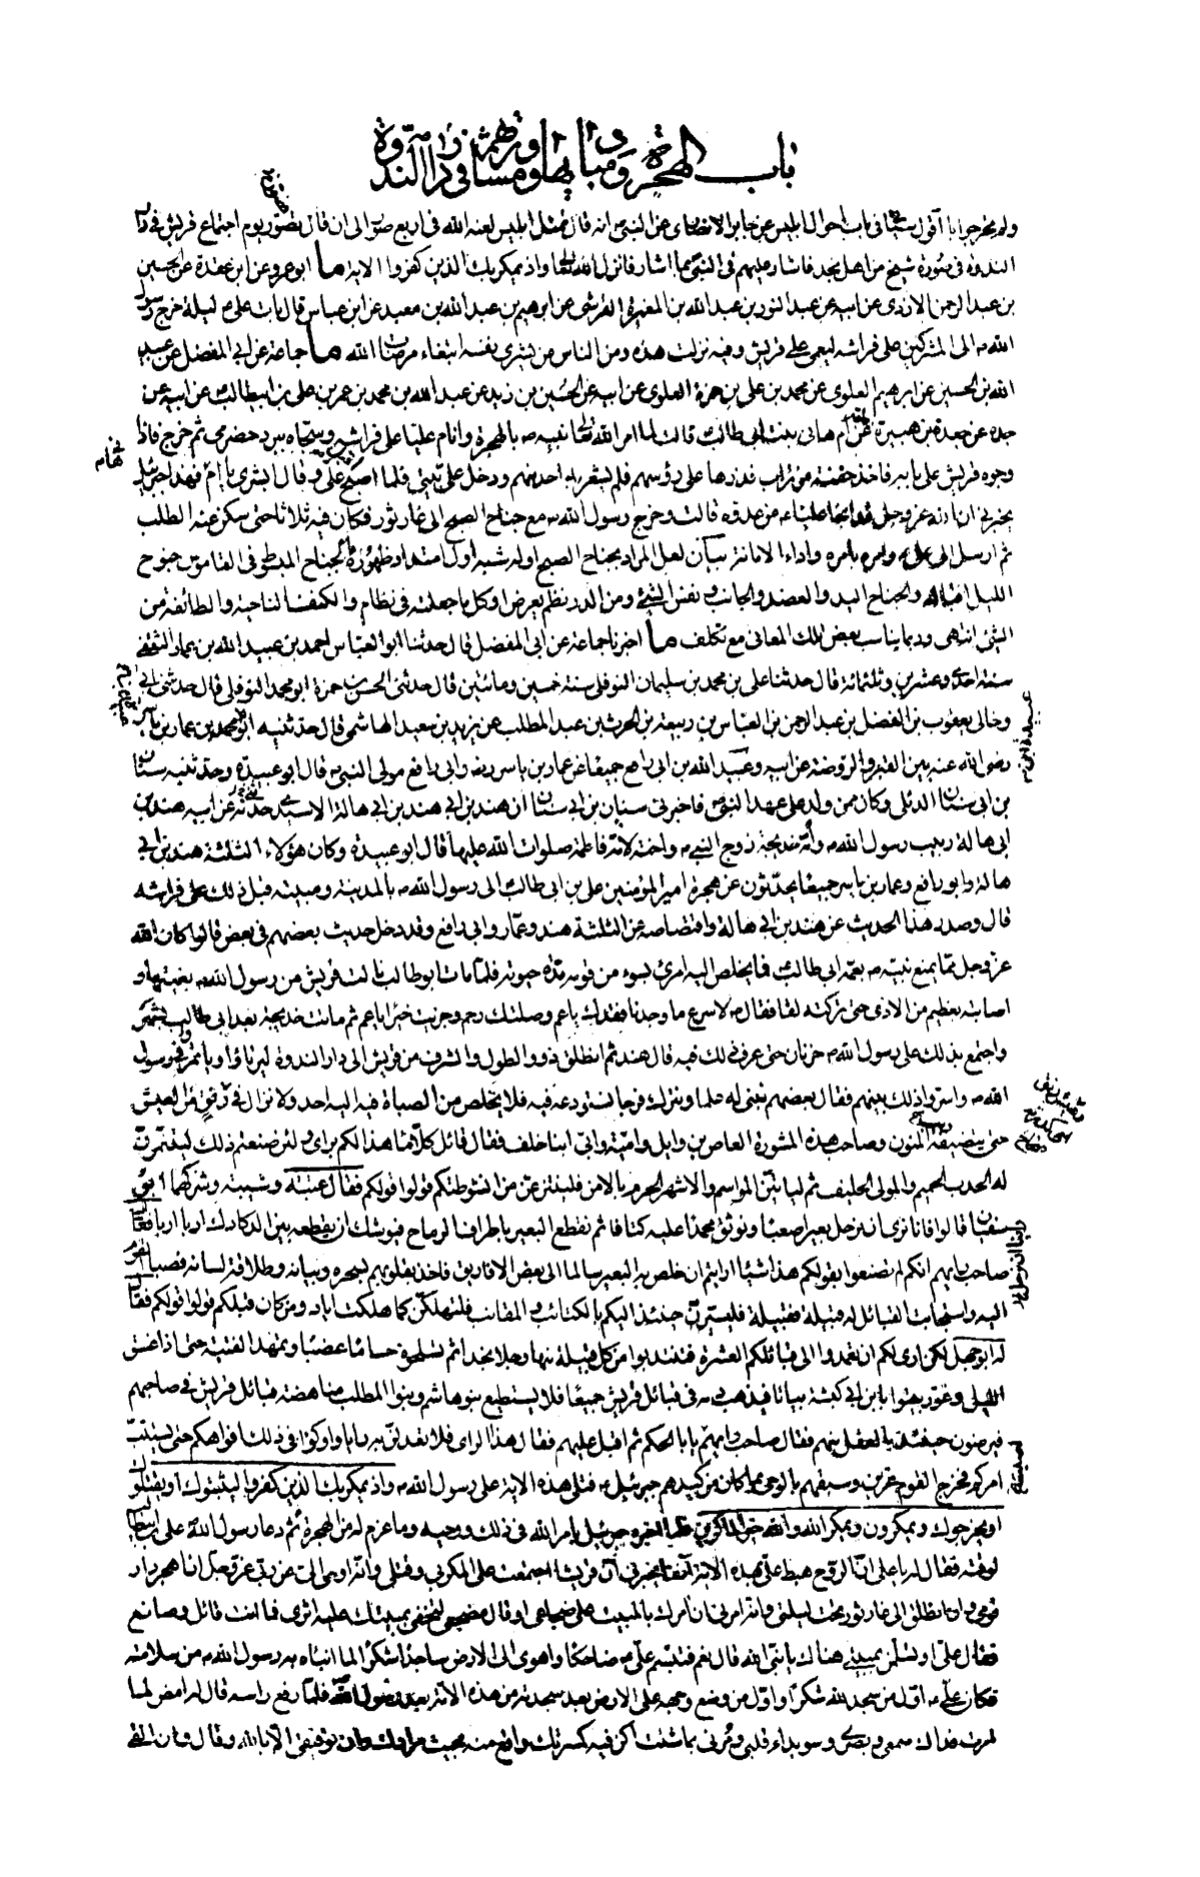 باب الهجرة ومباديها ومبيت
وتمثل ابليس لعنه الله في اربع صور الى ان قال وتصور يوم اجتماع قريش في دار
الندوة في صورة شيخ من اهل نجد فاشار عليهم في النبي بما اشار فانزل الله تعالى واذ يمكر بك الذين كفروا الاية ما ابو عمرو عن ابن عقدة عن الحسين
بن عبد الرحمن الازدي عن ابيه عن عبد النور بن عبد الله بن المغيرة القرشي عن ابرهيم بن عبد الله بن معبد عن ابن عباس قال بات علي ليلة خرج رسول
الله الى المشركين على فراشه ليعمى على قريش وفيه نزلت هذه ومن الناس من يشري نفسه ابتغاء مرضات الله ما جماعة عن ابي المفضل عن عبيد
الله بن الحسين عن ابرهيم العلوي عن محمد بن علي بن حمزة العلوي عن ابيه عن الحسين بن زيد عن عبد الله بن محمد بن عمر بن علي بن ابيطالب عن ابيه عن
جده عن جعدة بن هبيرة عن ام هاني بنت ابي طالب قالت لما امر الله تعالى نبيه بالهجرة وانام عليا على فراشه ووشحه ببرد حضرمي ثم خرج فاذا
وجوه قريش على بابه فاخذ حفنة من تراب فذرها على رؤسهم فلم يشعر به احد منهم ودخل على بيتي فلما اصبح اقبل علي وقال ابشري يا ام هاني فهذا جبرئيل
يخبرني ان الله عز وجل قد انجى عليا من عدوه قالت وخرج رسول الله مع جناح الصبح الى غار ثور فكان فيه ثلاثا حتى سكن عنه الطلب
ثم ارسل الى علي وامره بامره واداء الامانة بيان لعل المراد بجناح الصبح اوله شبه اول امتداد ظهوره بالجناح المبسوط في القاموس جنوح
الليل اقباله والجناح اليد والعضد والجانب ونفس الشيء ومن الدر نظم يعرض او كل ما جعلته في نظام والكنف الناحية والطائفة من
الشيء انتهى وربما يناسب بعض تلك المعاني مع تكلف ما اخبرنا جماعة عن ابي المفضل قال حدثنا ابو العباس احمد بن عبيد الله بن عمار الثقفي
سنة احدى وعشرين وثلثمائة قال حدثنا علي بن محمد بن سليمان النوفلي سنة خمسين ومائتين قال حدثني الحسن بن حمزة ابو محمد النوفلي قال حدثني ابي
وخالي يعقوب بن الفضل بن عبد الرحمن بن العباس بن ربيعة بن الحرث بن عبد المطلب عن زبير بن سعيد الهاشمي قال حدثنيه ابو عبيدة بن محمد بن عمار بن ياسر
رضي الله عنه بين القبر والروضة عن ابيه وعبيد الله بن ابي رافع جميعا عن عمار بن ياسر رضه وابي رافع مولى النبي قال ابو عبيدة وحدثنيه سنان
بن ابي سنان الدئلي وكان ممن ولد على عهد النبي فاخبرني سنان بن ابي سنان ان هند بن ابي هند بن ابي هالة الاسيدي حدثه عن ابيه هند بن
ابي هالة ربيب رسول الله وامه خديجة زوج النبي واخته لامه فاطمة صلوات الله عليها قال ابو عبيدة وكان هؤلاء الثلثة هند بن ابي
هالة وابو رافع وعمار بن ياسر جميعا يحدثون عن هجرة امير المؤمنين علي بن ابي طالب الى رسول الله بالمدينة ومبيته قبل ذلك على فراشه
قال وصدر هذا الحديث عن هند بن ابي هالة واقتصاصه عن الثلثة هند وعمار وابي رافع وقد دخل حديث بعضهم في بعض قالوا كان الله
عز وجل مما يمنع نبيه بعمه ابي طالب فما يخلص اليه امرئ بسوء من قومه مدة حيوته فلما مات ابو طالب نالت قريش من رسول الله بغيتها و
اصابته بعظيم من الاذى حتى تركته لقا فقال لاسرع ما وجدنا فقدك يا عم وصلتك رحم وجزيت خيرا يا عم ثم ماتت خديجة بعد ابي طالب بشهر
واجتمع بذلك على رسول الله حزنان حتى عرف ذلك فيه قال هند ثم انطلق ذوو الطول والشرف من قريش الى دار الندوة ليرتاؤا ويأتمروا في رسول
الله واسروا ذلك بينهم فقال بعضهم نبني له علما ونترك فرجا نستودعه فيه فلا يخلص من الصباة فيه اليه احد ولا نزال في رفق من العيش
حتى يتضيفه ريب المنون وصاحب هذه المشورة العاص بن وايل وامية وابي ابنا خلف فقال قائل كلا ما هذا لكم براى ولئن صنعتم ذلك ليتنمرن
له الحدب الحميم والمولى الحليف ثم ليأتين المواسم والاشهر الحرم بالامن فلينتزعن من انشوطتكم قولوا قولكم فقال عتبة وشيبة وشركهما ابو
سفين قالوا فانا نرى ان نرحل بعيرا صعبا ونوثق محمدا عليه كتافا ثم نقطع البعير باطراف الرماح فيوشك ان يقطعه بين الدكادك اربا اربا فقال
صاحب رايهم انكم لم تصنعوا بقولكم هذا شيئا ارايتم ان خلص به البعير سالما الى بعض الافاريق فاخذ بقلوبهم بسحره وبيانه وطلاقة لسانه فصبا القوم
اليه واستجابت القبائل له قبيلة فقبيلة فليسيرن حينئذ اليكم بالكتائب والمقانب فلتهلكن كما هلكت اياد ومن كان قبلكم قولوا قولكم فقال
له ابو جهل لكن ارى لكم ان تعمدوا الى قبائلكم العشرة فتنتدبوا من كل قبيلة منها رجلا نجدا ثم تسلحوه حساما عضبا وتمهد الفتية حتى اذا غسق
الليل وغور بيتوا بابن ابي كبشة بياتا فيذهب دمه في قبائل قريش جميعا فلا يستطيع بنو هاشم وبنو المطلب مناهضة قبائل قريش في صاحبهم
فيرضون حينئذ بالعقل منهم فقال صاحب رايهم يا ابا الحكم ثم اقبل عليهم فقال هذا الراى فلا تعدلن به رايا واوكوا في ذلك افواهكم حتى يستتب
امركم فخرج القوم عزين وسبقهم بالوحي بما كان من كيدهم جبرئيل فتلى هذه الاية على رسول الله واذ يمكر بك الذين كفروا ليثبتوك او يقتلوك
او يخرجوك ويمكرون ويمكر الله والله خير الماكرين فلما اخبره جبرئيل بامر الله في ذلك ووحيه وما عزم له من الهجرة ثم دعا رسول الله علي بن ابيطالب
لوقته فقال له يا علي ان الروح هبط علي بهذه الاية آنفا يخبرني ان قريشا اجتمعت على المكر بي وقتلي وانه اوحى الي عن ربي عز وجل ان اهجر دار
قومي وان انطلق الى غار ثور تحت ليلتي وانه امرني ان آمرك بالمبيت على ضجاعي او قال مضجعي لتخفي بمبيتك عليه اثري فما انت قائل وصانع
فقال علي او تسلمن بمبيتي هناك يا نبي الله قال نعم فتبسم علي ضاحكا واهوى الى الارض ساجدا شكرا لما انبأه به رسول الله من سلامته
فكان علي اول من سجد لله شكرا واول من وضع وجهه على الارض بعد سجدته من هذه الامة بعد رسول الله فلما رفع راسه قال له امض لما
امرت فداك سمعي وبصري وسويداء قلبي ومرني بما شئت اكن فيه كمسرتك واقع منه بحيث مرادك وان توفيقي الا بالله وقال وان القى